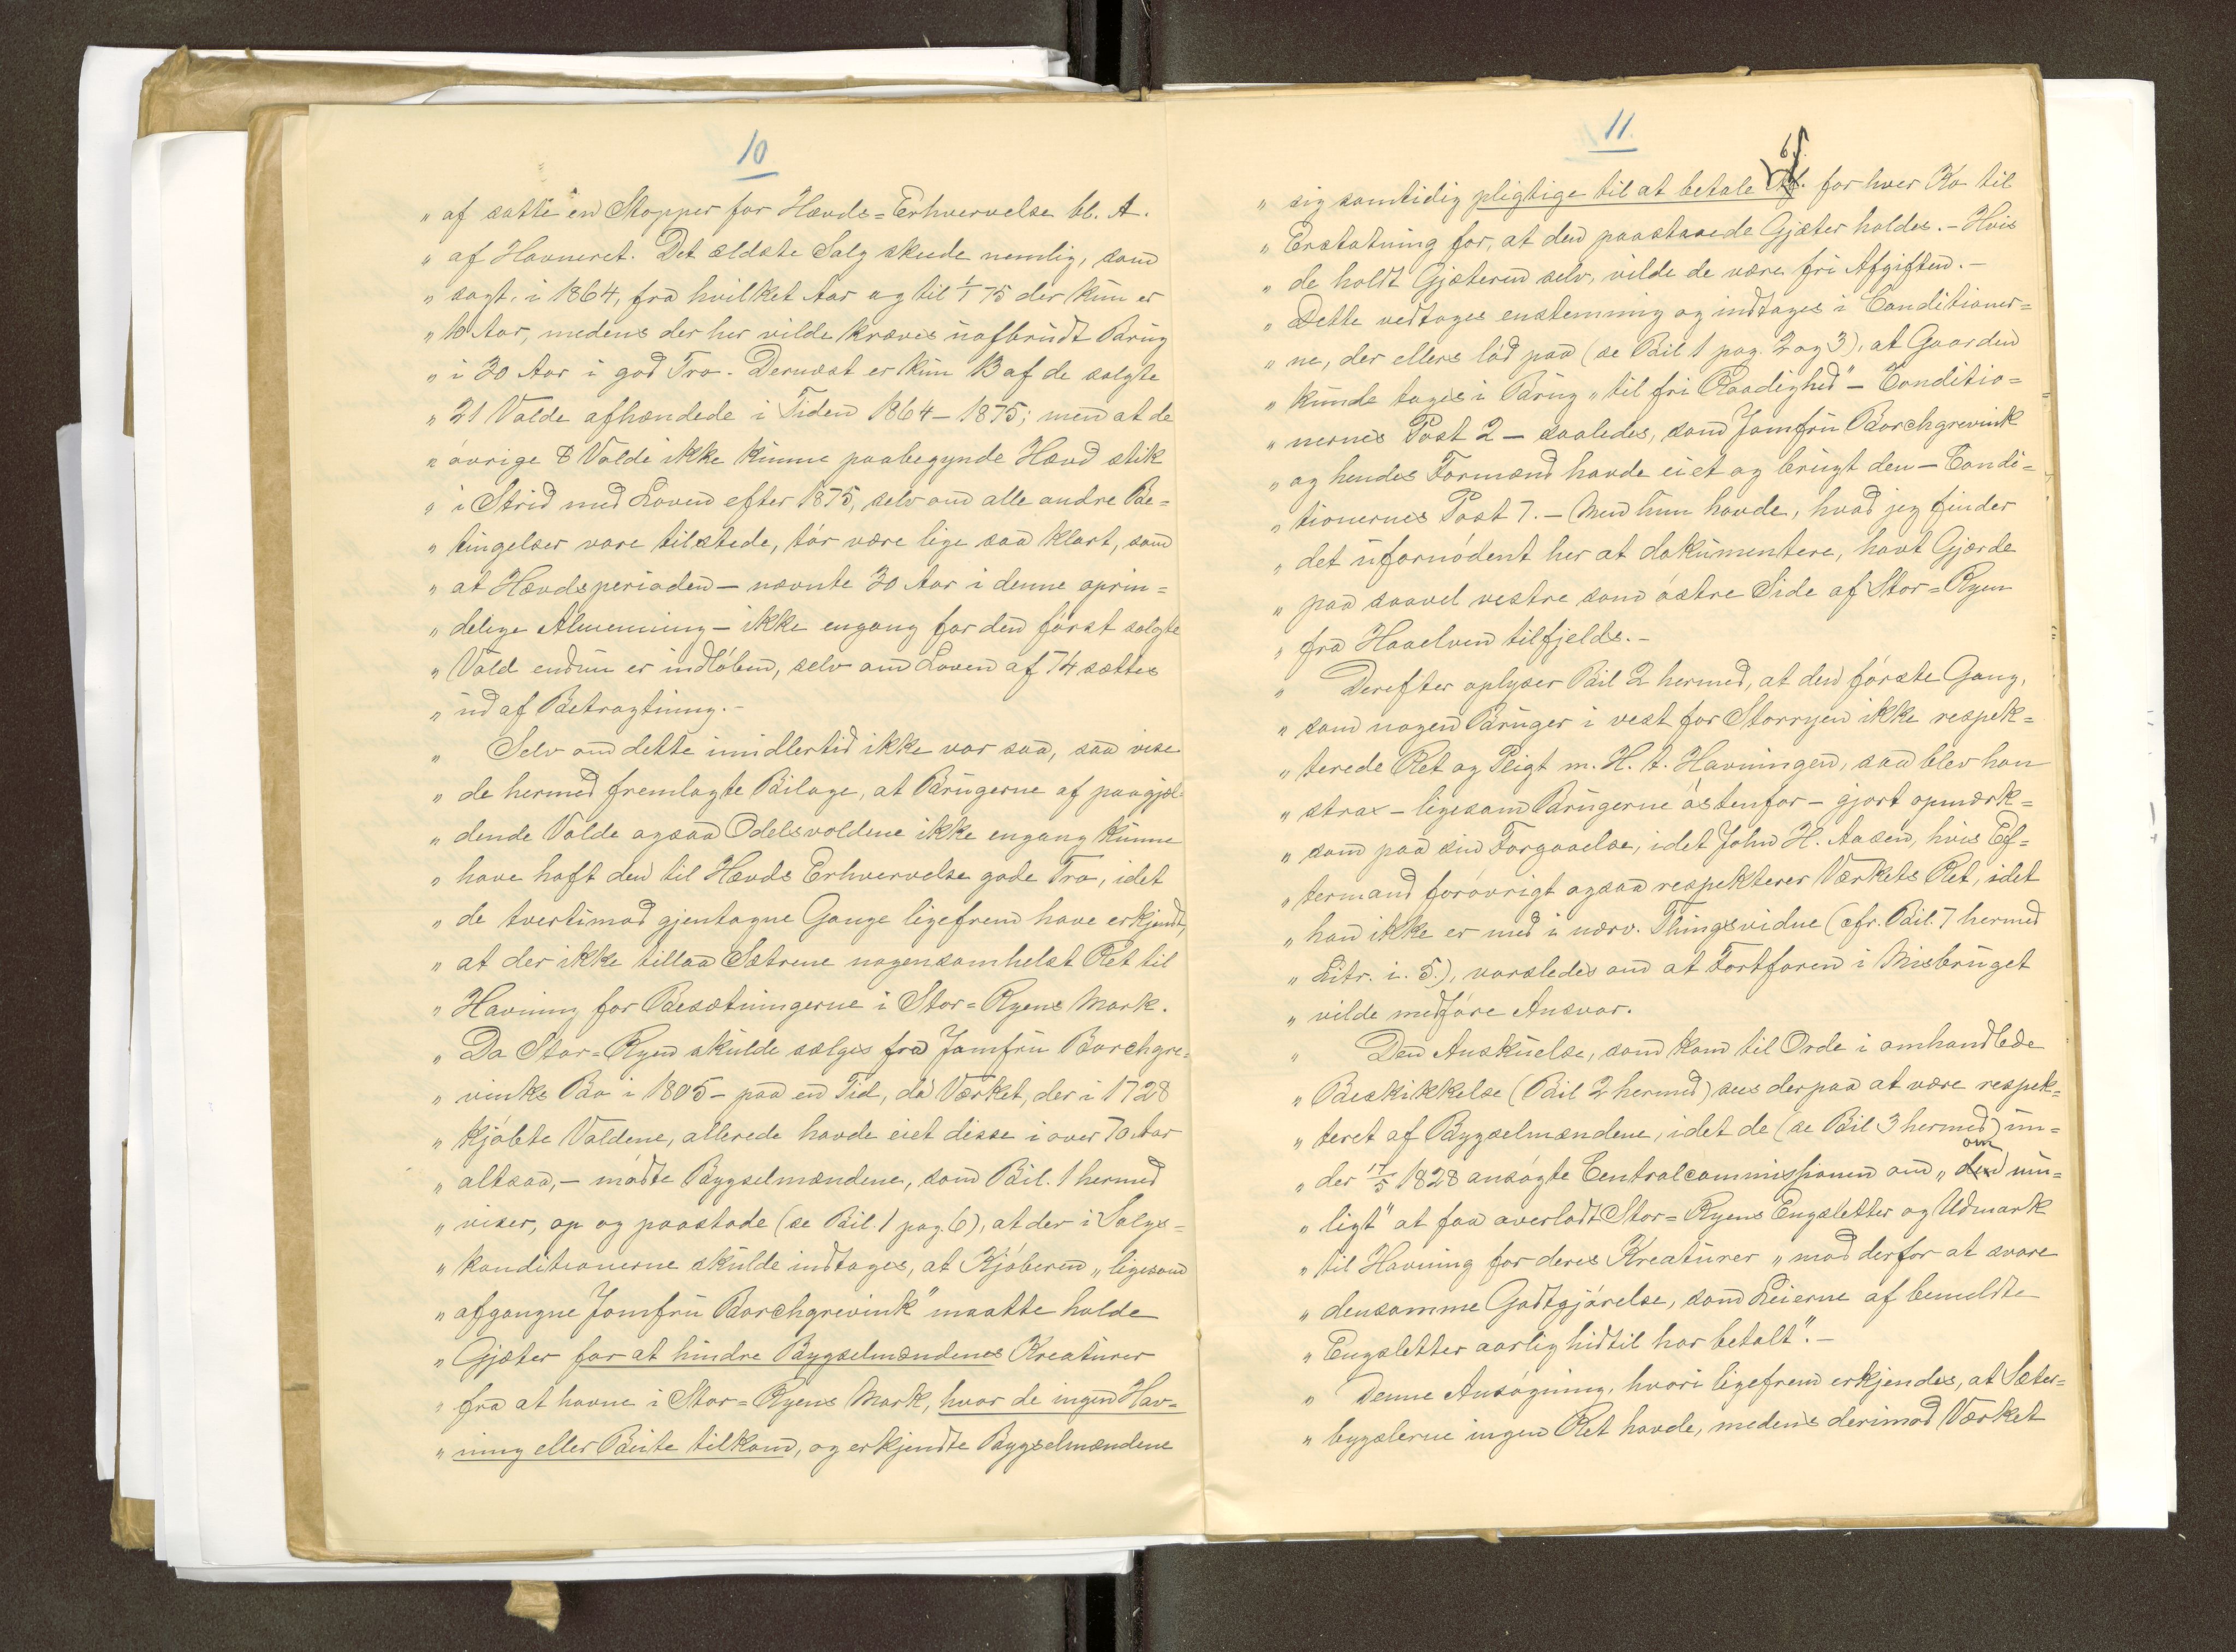 10
„ af satte en Stopper for Hævds=Erhvervelse bl. A.
„ af Havneret. Det ældste Salg skeede nemlig, som
„ sagt, i 1864, fra hvilket Aar og til 1/1 75 der kun er
„ 10 Aar, medens der her vilde kræves uafbrudt Brug
„ i 30 Aar i god Tro. Dernæst er kun 13 af de solgte
„ 21 Volde afhændede i Tiden 1864–1875; men at de
„ øvrige 8 Volde ikke kunne paabegynde Hævd stik
„ i Strid med Loven efter 1875, selv om alle andre Be=
„ tingelser vare tilstede, tør være lige saa klart, som
„ at Hævdsperioden – nævnte 30 Aar i denne oprin=
„ delige Almenning – ikke engang for den først solgte
„ Vold endnu er indløben, selv om Loven af 74 sættes
„ ud af Betragtning.–
„ Selv om dette imidlertid ikke var saa, saa vise
„ de hermed fremlagte Bilage, at Brugerne af paagjæl-
„ dende Volde ogsaa Odelsvoldene ikke engang kunne
„ have haft den til Hævds Erhvervelse gode Tro, idet
„ de tvertimod gjentagne Gange ligefrem have erkjendt,
„ at der ikke tillaa Sætrene nogensomhelst Ret til
„ Havning for Besætningerne i Stor=Ryens Mark.
„ Da Stor=Ryen skulde sælges fra Jomfru Borchgre=
„ vinks Bo i 1805 – paa en Tid, da Værket, der i 1728
„ kjøbte Voldene, allerede havde eiet disse i over 70 Aar
„ altsaa, – mødte Bygselmændene, som Bil. 1 hermed
„ viser, op og paastode (se Bil. 1 pag. 6), at der i Salgs=
„ konditionerne skulde indtages, at Kjøberen „ligesom
„ afgangne Jomfru Borchgrevink" maatte holde
„ Gjæter for at hindre Bygselmændenes Kreaturer
„ fra at havne i Stor=Ryens Mark, hvor de ingen Hav=
„ ning eller Beite tilkom, og erkjendte Bygselmændene
11.
6 f.
„ sig samtidig pligtige til at betale for hver Ko til
„ Erstatning for, at den paastaaede Gjæter holdes. – Hvis
„ de holdt Gjæteren selv, vilde de være fri Afgiften. –
„ Dette vedtoges enstemmig og indtages i Conditioner=
„ ne, der ellers lød paa (se Bil 1 pag. 2 og 3), at Gaarden
„ kunde tages i Brug „til fri Raadighed" – Conditio=
„ nernes Post 2 – saaledes, som Jomfru Borchgrevink
„ og hendes Formænd havde eiet og brugt den – Condi=
„ tionernes Post 7. – Men hun havde, hvad jeg finder
„ det ufornødent her at dokumentere, havt Gjærde
„ paa saavel vestre som østre Side af Stor=Ryen
„ fra Haaelven tilfjelds. –
„ Derefter oplyser Bil 2 hermed, at den første Gang,
„ som nogen Bruger i vest for Storryen ikke respek=
„ terede Ret og Pligt m. H. t. Havningen, saa blev han
„ strax – ligesom Brugerne østenfor – gjort opmærk=
„ som paa sin Forgaaelse, idet John H. Aasen, hvis Ef=
„ termand forøvrigt ogsaa respekterer Værkets Ret, idet
„ han ikke er med i nærv. Thingsvidne (cfr. Bil. 7 hermed
„ Litr. i. 5.), varsledes om at Fortfaren i Misbruget
„ vilde medføre Ansvar.
„ Den Anskuelse, som kom til Orde i omhandlede
„ Beskikkelse (Bil 2 hermed) sees derpaa at være respek=
„ teret af Bygselmændene, idet de (se Bil 3 hermed) un=
om
„ der 17/5 1828 ansøgte Centralcommissionen om „den mu=
„ ligt" at faa overladt Stor=Ryens Engsletter og Udmark
„ til Havning for deres Kreaturer „mod derfor at svare
„ densamme Godtgjørelse, som Leierne af bemeldte
„ Engsletter aarlig hidtil har betalt". –
„ Denne Ansøgning, hvori ligefrem erkjendes, at Sæter=
„ bygslerne ingen Ret havde, medens derimod Værket